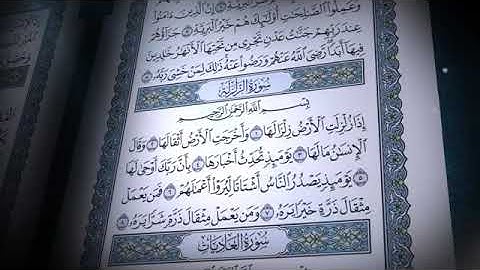 إِنَّ ٱلَّذِينَ ءَامَنُوا۟
وَعَمِلُوا۟ ٱلصَّٰلِحَٰتِ أُو۟لَٰٓئِكَ هُمْ خَيْرُ ٱلْبَرِيَّةِ ٧ جَزَآؤُهُمْ
عِندَ رَبِّهِمْ جَنَّٰتُ عَدْنٍ تَجْرِى مِن تَحْتِهَا ٱلْأَنْهَٰرُ خَٰلِدِينَ
فِيهَآ أَبَدًا رَّضِىَ ٱللَّهُ عَنْهُمْ وَرَضُوا۟ عَنْهُ ذَٰلِكَ لِمَنْ خَشِىَ رَبَّهُۥ ٨
سُورَةُ الزَّلْزَلَةِ
بِسْمِ ٱللَّهِ ٱلرَّحْمَٰنِ ٱلرَّحِيمِ
إِذَا زُلْزِلَتِ ٱلْأَرْضُ زِلْزَالَهَا ١ وَأَخْرَجَتِ ٱلْأَرْضُ أَثْقَالَهَا ٢ وَقَالَ
ٱلْإِنسَٰنُ مَا لَهَا ٣ يَوْمَئِذٍ تُحَدِّثُ أَخْبَارَهَا ٤ بِأَنَّ رَبَّكَ أَوْحَىٰ لَهَا
٥ يَوْمَئِذٍ يَصْدُرُ ٱلنَّاسُ أَشْتَاتًا لِّيُرَوْا۟ أَعْمَٰلَهُمْ ٦ فَمَن يَعْمَلْ
مِثْقَالَ ذَرَّةٍ خَيْرًا يَرَهُۥ ٧ وَمَن يَعْمَلْ مِثْقَالَ ذَرَّةٍ شَرًّا يَرَهُۥ ٨
سُورَةُ العَادِيَاتِ